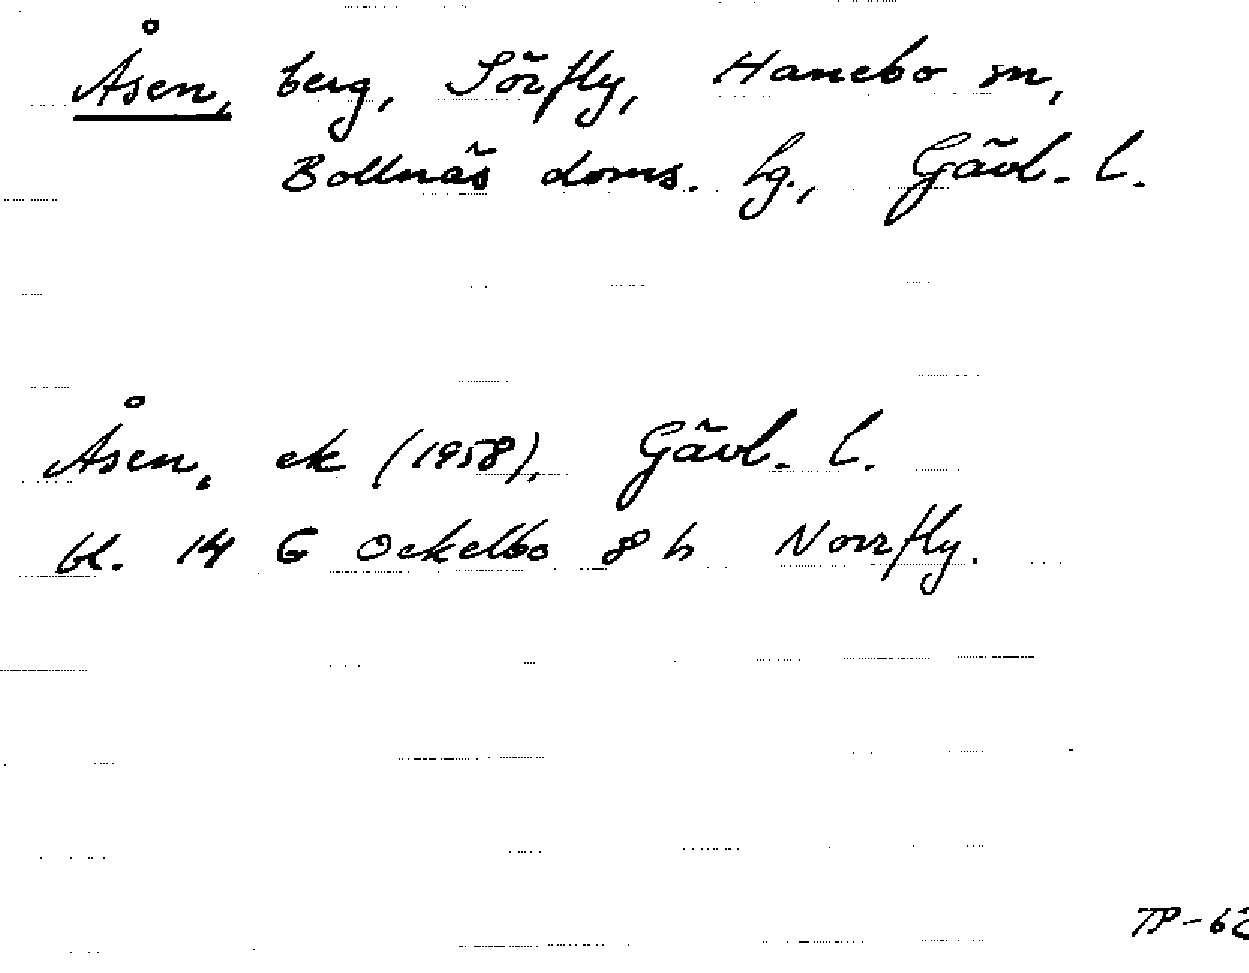 Åsen, berg, Sörfly, Hanebo sn,
Bollnäs doms. lg., Gävl. l.
Åsen, ek (1958), Gävl. l.
bl. 14 G Ockelbo 8 h Norrfly.
TP-62